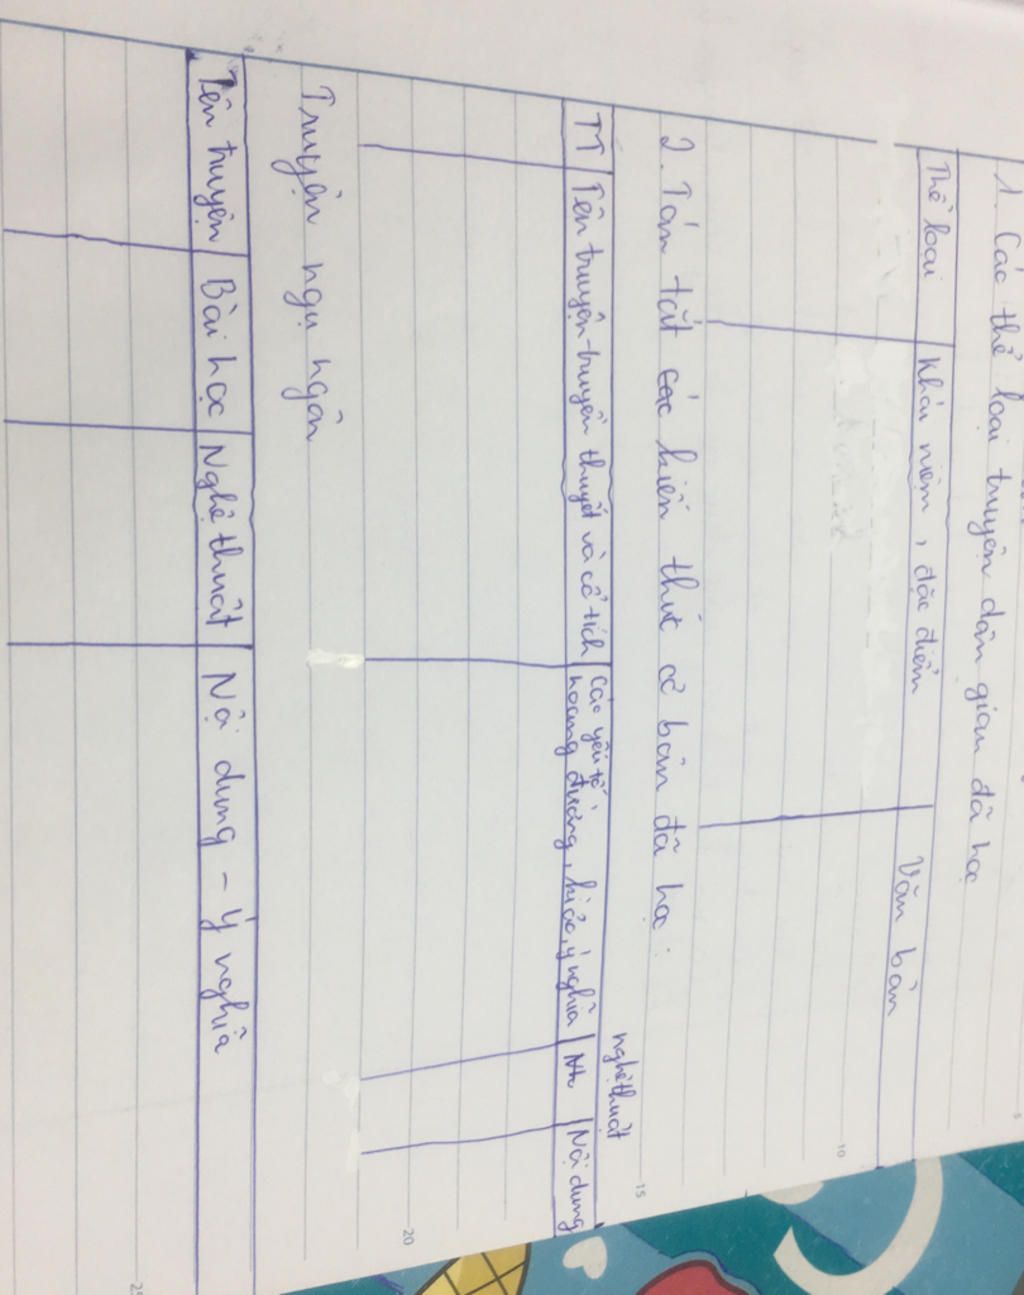 1. Các thể loại truyện dân gian đã học
Thể loại Khái niệm, đặc điểm Văn bản
10
2. Tóm tắt các kiến thức cơ bản đã học:
15
nghệ thuật
TT Tên truyện-truyền thuyết và cổ tích Các yếu tố
hoang đường, kì ảo, ý nghĩa Nth Nội dung
20
Truyện ngụ ngôn
Tên truyện Bài học Nghệ thuật Nội dung - Ý nghĩa
25